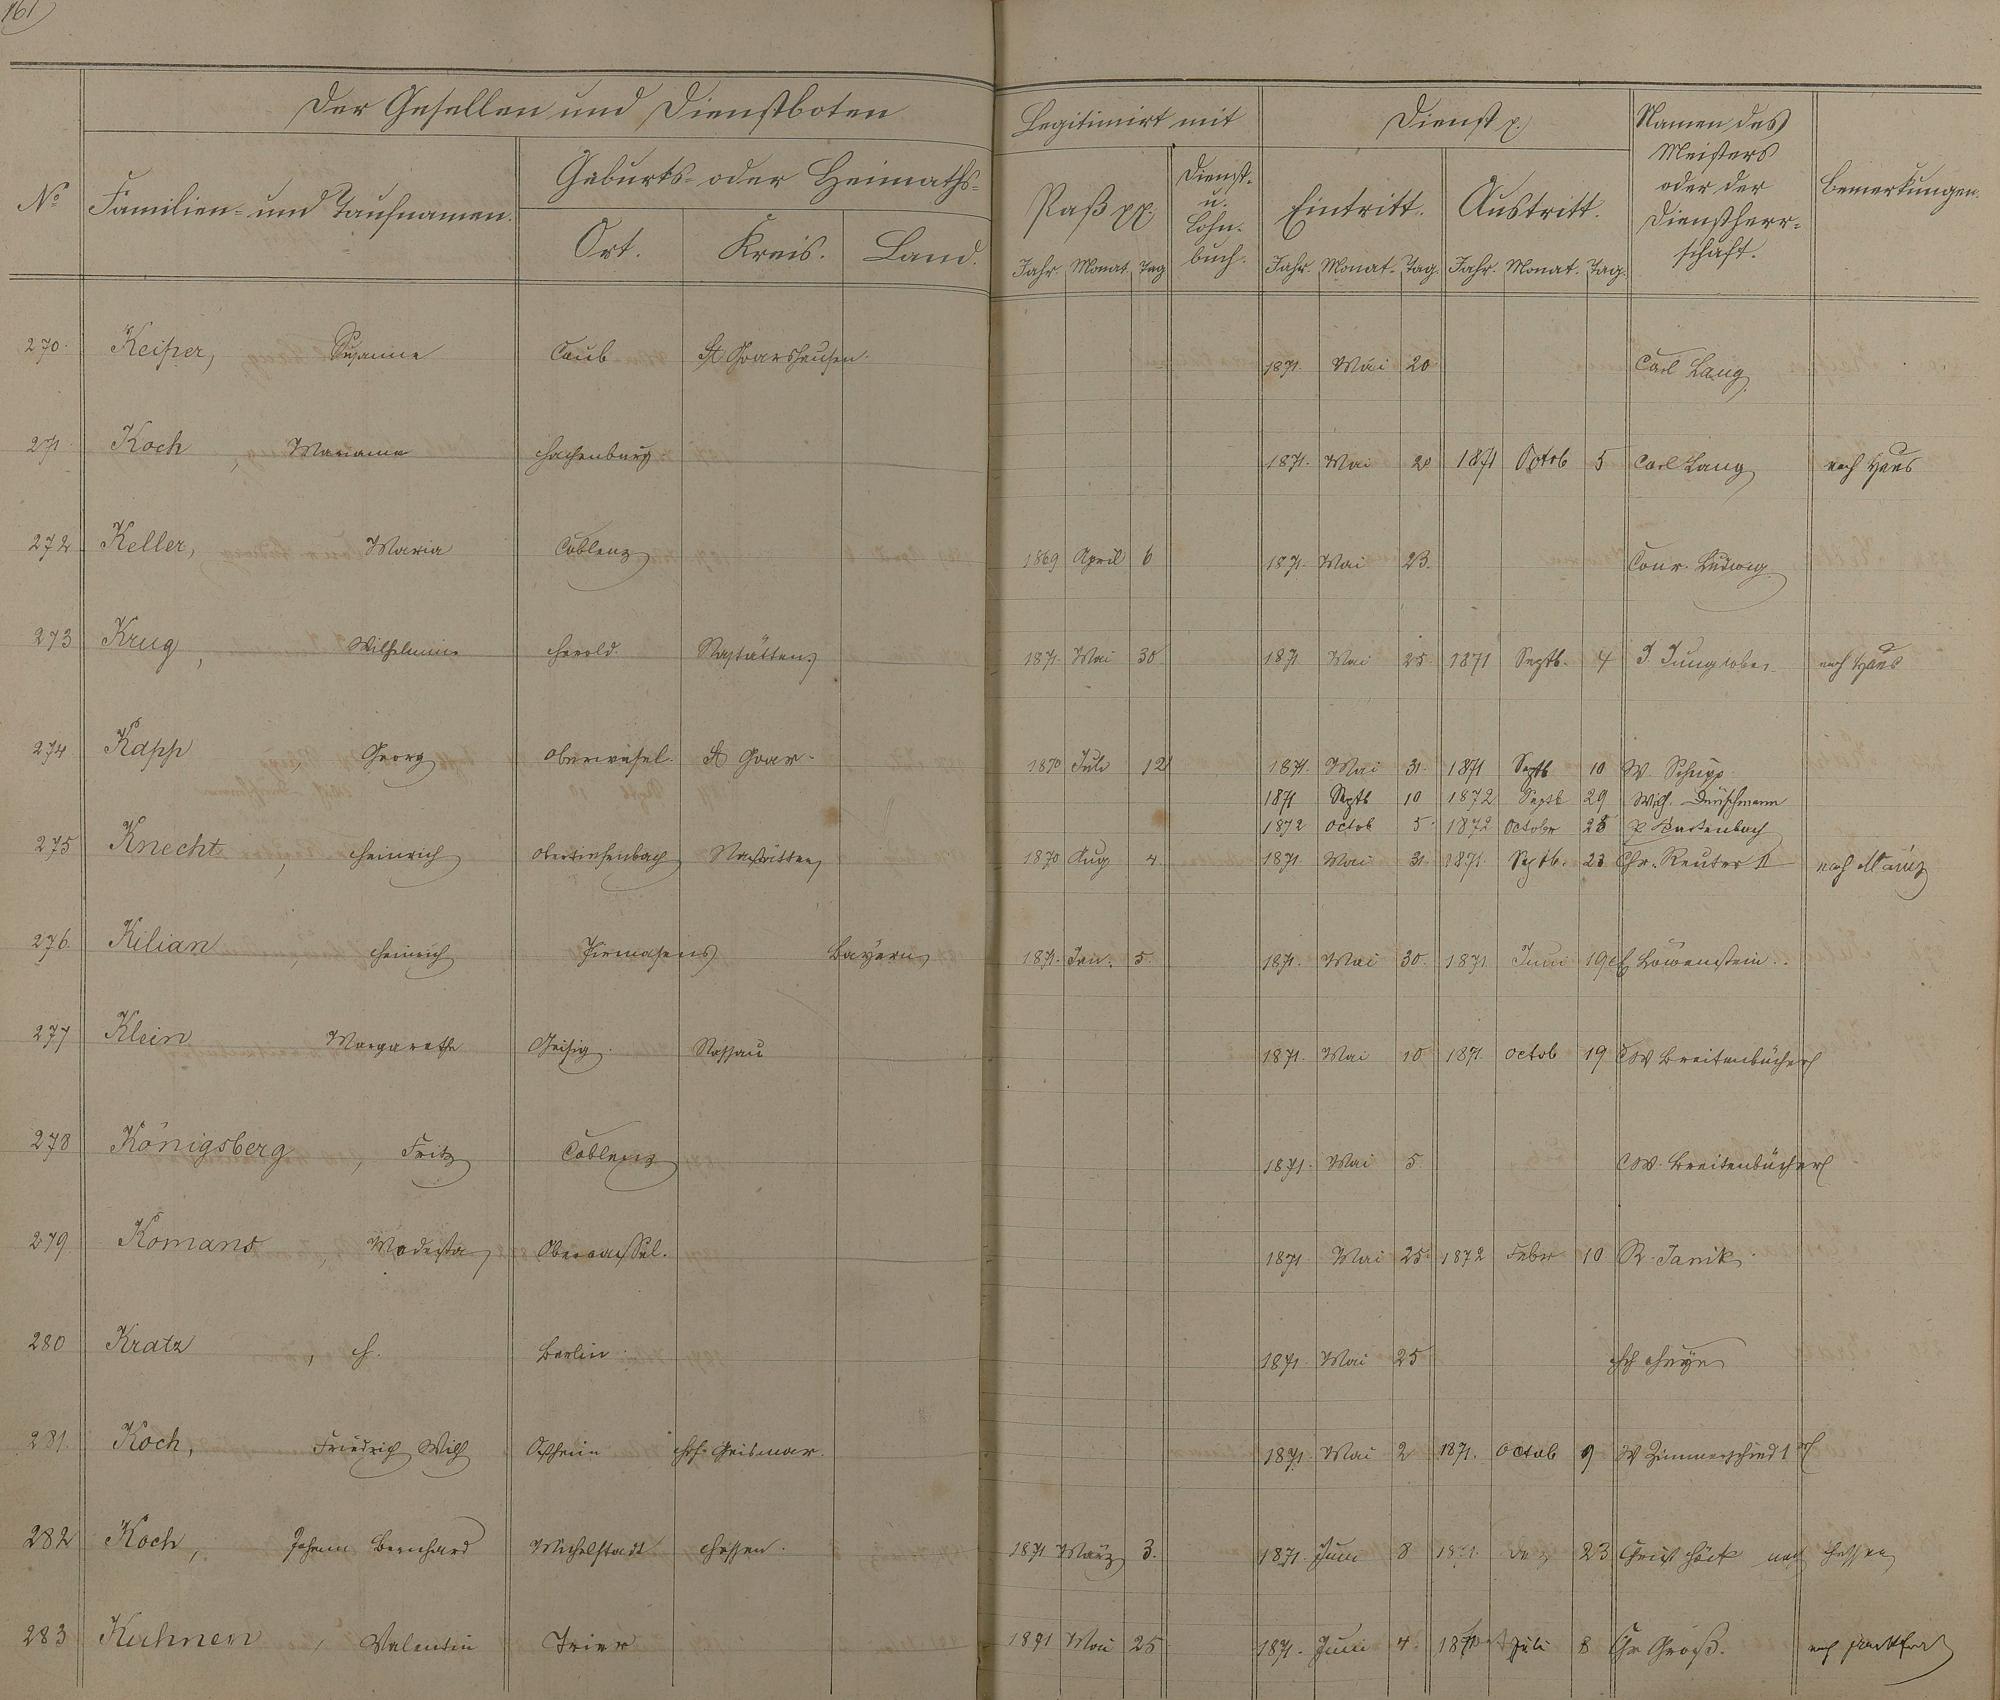 161)
Der Gesellen und Dienstboten
Legitimirt mit
Dienst p.
Namen des Meisters oder der Dienstherr-schaft.
Bemerkungen.
No
Familien- und Taufnamen.
Geburts- oder Heimaths-
Ort. Kreis. Land.
Paß pp.
Dienst- u. Lohn-buch.
Eintritt. Austritt.
Jahr. Monat. Tag
Jahr. Monat. Tag. Jahr. Monat. Tag.
270. Keiper, Susanna Caub St Goarshausen. 1871. Mai 20 Carl Lang
271 Koch, Mariana Hachenburg 1871. Mai 20 1871 Octob 5 Carl Lang nach Haus
272 Keller, Maria Coblenz 1869 April 6 1871. Mai 23. Conr. Ludwig
273 Krug, Wilhelmine Herold. Nastätten 1871. Mai 30 1871 Mai 25 1871 Septb. 4 J. Jung nach Haus
274 Kapp, Georg Oberwesel. St Goar. 1870 Juli 12 1871. Mai 31. 1871 Septb 10 W. Schupp
1871 Septb 10 1872 Septb 29 Wilh.
1872 Octob 5. 1872 Octobr 28
275 Knecht, Heinrich Obertiefenbach Nastätten 1870 Aug 4. 1871. Mai 31. 1871. Septb. 23 Chr. Reuter II nach Mainz
276. Kilian, Heinrich Pirmasens Bayern 1871. Jan. 5. 1871. Mai 30. 1871 Juni 19 Löwenstein.
277 Klein Margarethe Geisig. Nassau 1871. Mai 10 1871. Octob 19 CW Breitenbücher
278 Königsberg, Fritz Coblenz 1871. Mai 5 CW. Breitenbücher
279 Komans, Modesta Obercassel. 1871. Mai 25. 1872 Febr 10 R. Janik
280 Kratz, H. Berlin. 1871. Mai 25
281. Koch, Friedrich Wilh Ostheim Hof-Geismar. 1871. Mai 2 1871. Octob 9 W Zimmerschied 1r
282 Koch, Johann Bernhard Michelstadt Hessen. 1871 März 3. 1871. Juni 8 1871. Dez 23 Christ nach Hessen
283 Kuhnen, Valentin Trier 1871 Mai 25 1871. Juni 4. Juli 8 Chr Groß. nach